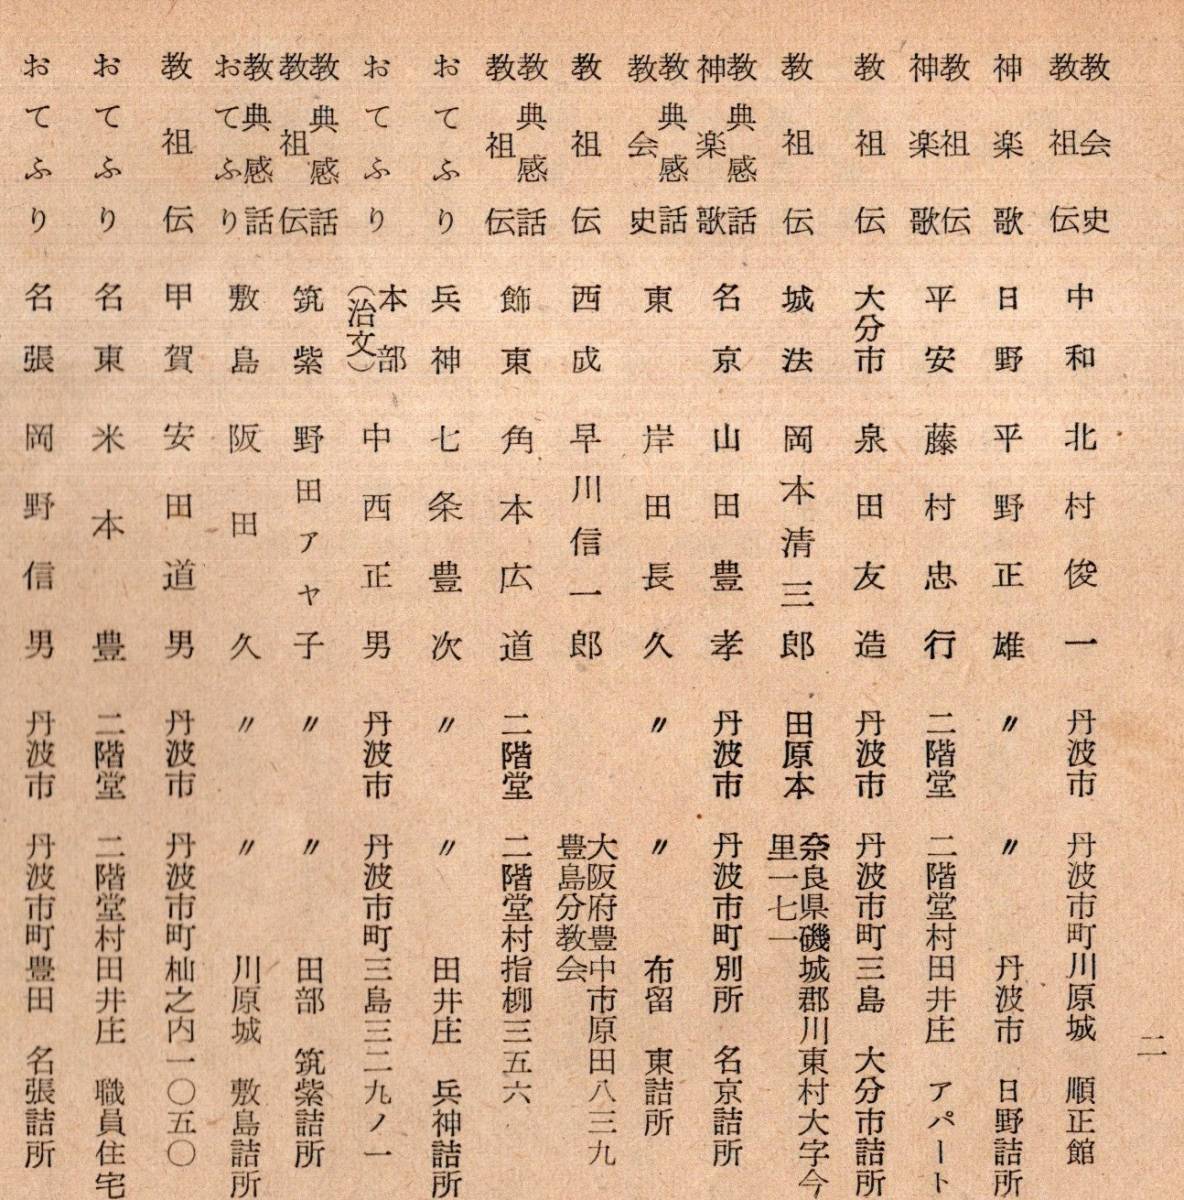 二
教会史 教祖伝 中和 北村俊一 丹波市 丹波市町川原城 順正館
神楽歌 日野 平野正雄 〃 〃 丹波市 日野詰所
教祖伝 神楽歌 平安 藤村忠行 二階堂 二階堂村田井庄 アパート
教祖伝 大分市 泉田友造 丹波市 丹波市町三島 大分市詰所
教祖伝 城法 岡本清三郎 田原本 奈良県磯城郡川東村大字今里一七一
教典感話 神楽歌 名京 山田豊孝 丹波市 丹波市町別所 名京詰所
教典感話 教会史 東 岸田長久 〃 〃 布留 東詰所
教祖伝 西成 早川信一郎 大阪府豊中市原田八三九 豊島分教会
教典感話 教祖伝 飾東 角本広道 二階堂 二階堂村指柳三五六
おてふり 兵神 七条豊次 〃 〃 田井庄 兵神詰所
おてふり 本部(治文) 中西正男 丹波市 丹波市町三島三二九ノ一
教典感話 教祖伝 筑紫 野田アヤ子 〃 〃 田部 筑紫詰所
教典感話 おてふり 敷島 阪田久 〃 〃 川原城 敷島詰所
教祖伝 甲賀 安田道男 丹波市 丹波市町杣之内一〇五〇
おてふり 名東 米本豊 二階堂 二階堂村田井庄 職員住宅
おてふり 名張 岡野信男 丹波市 丹波市町豊田 名張詰所